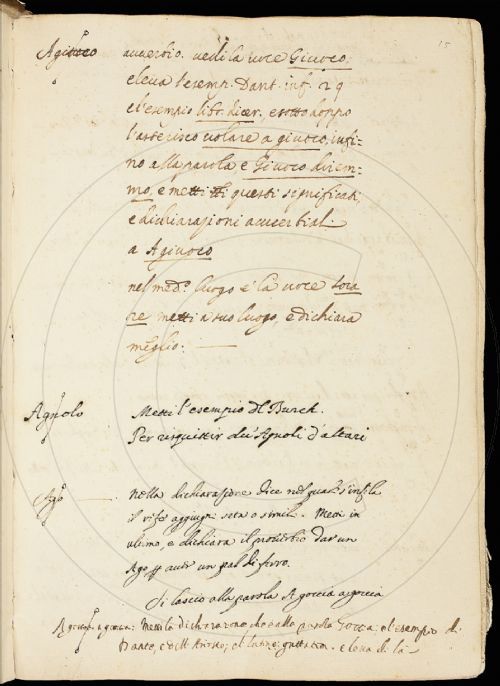 15
Agiuoco avverbio. vedi la voce Giuoco,
e leva l'esemp. Dant. inf. 29
e l'esempio libr. dicer. e sotto doppo
l'asterisco volare a giuoco, infi-
no alla parola e Giuoco direm-
mo, e metti questi significati,
e dichiarazioni avverbial.
a Agiuoco
nel med.º luogo e' la voce sora
re metti a suo luogo, e dichiara
meglio.
Agnolo Metti l'esempio del Burch.
Per risquittir du' Agnoli d'altari
Ago Nella dichiarazione dice nel quale s'infila
il refe aggiugni seta o simili. Metti in
ultimo, e dichiara il proverbio dar un
Ago p aver un pal di ferro.
Si lascio alla parola A goccia agoccia
A goccia a goccia: Metti la dichiarazione che è alla parola Gocca, e l'esempio di
Dante, e dell' Ariosto, el latino guttatim. e leva di là